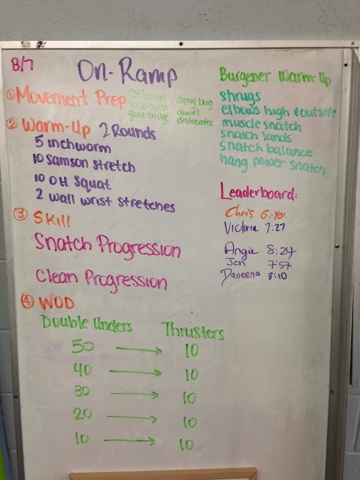 8/7
On-Ramp
① Movement Prep
cat/camel
torso twist
glute bridge
dying bug
dowel
dislocates
② Warm-Up 2 Rounds
5 inchworm
10 Samson Stretch
10 OH Squat
2 wall wrist stretches
③ Skill
Snatch Progression
Clean Progression
④ WOD
Double Unders Thrusters
50 → 10
40 → 10
30 → 10
20 → 10
10 → 10
Burgener Warm-Up
shrugs
elbows high & outside
muscle snatch
snatch lands
snatch balance
hang power snatch
Leaderboard:
Chris 6:40
Victoria 7:27
Angie 8:24
Jen 7:57
8:10